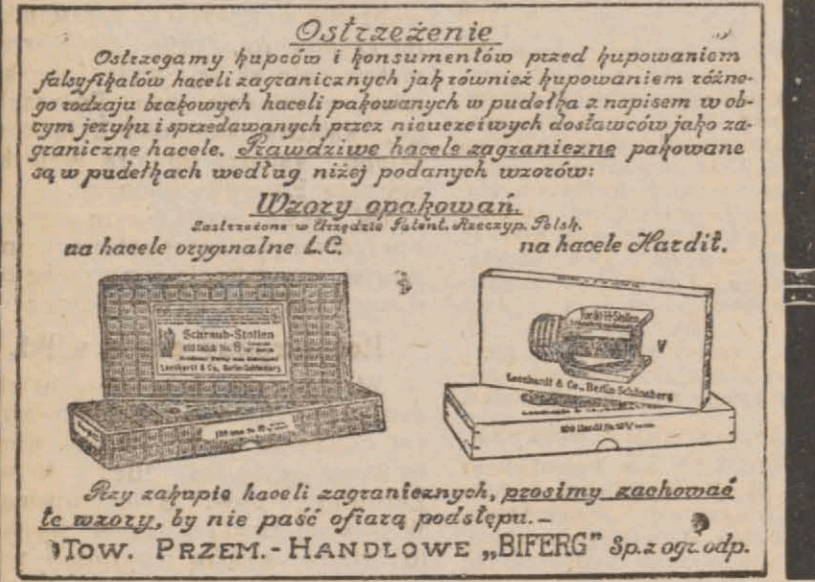 Ostrzeżenie
Ostrzegamy kupców i konsumentów przed kupowaniem
falsyfikatów haceli zagranicznych jak również kupowaniem różne-
go rodzaju brakowych haceli pakowanych w pudełka z napisem w ob-
cym języku i sprzedawanych przez nieuczciwych dostawców jako za-
graniczne hacele. Prawdziwe hacele zagraniczne pakowane
są w pudełkach według niżej podanych wzorów:
Wzory opakowań.
Zastrzeżone w Urzędzie Patent. Rzeczyp. Polsk.
na hacele oryginalne L.C.
na hacele Hardit.
Schraub-Stollen
Leonhardt & Co., Berlin-Schöneberg
Hardit-Stollen
V
Leonhardt & Co., Berlin-Schöneberg
Przy zakupie haceli zagranicznych, prosimy zachować
te wzory, by nie paść ofiarą podstępu.–
TOW. PRZEM.-HANDLOWE „BIFERG" Sp. z ogr. odp.